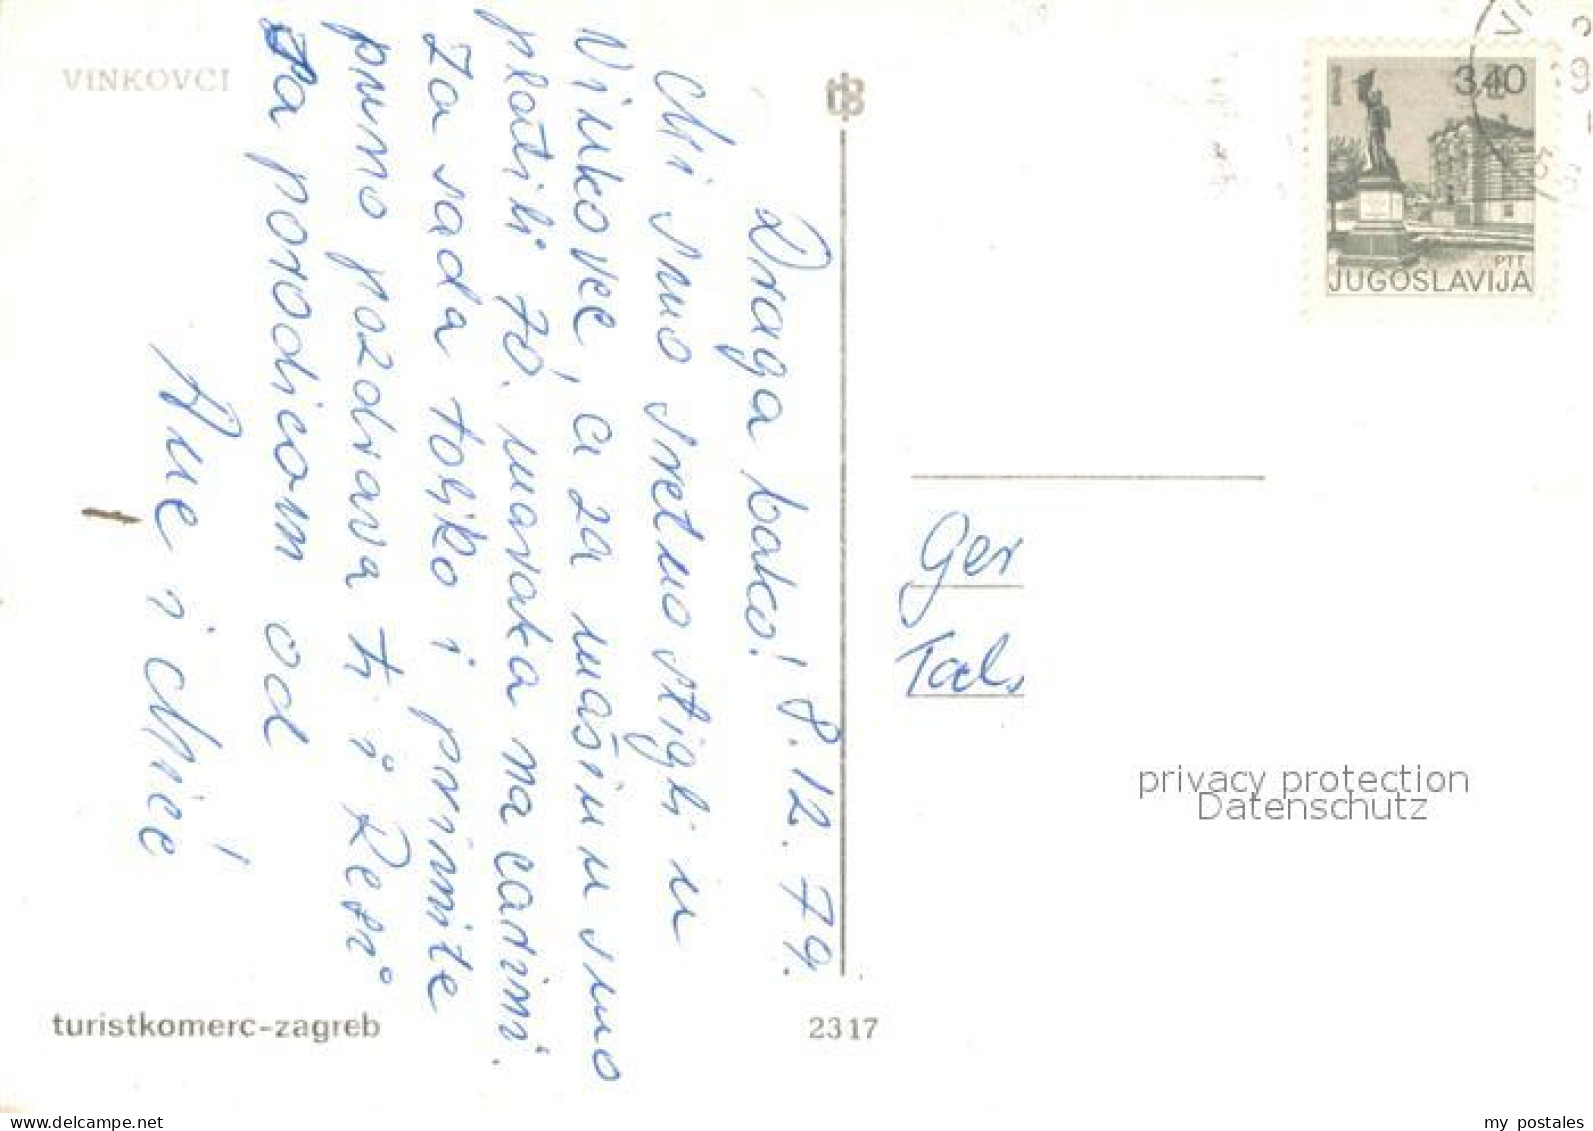 VINKOVCI
Draga bako! 8.12.79.
Mi smo sretno stigli u
Vinkovce, a za mašinu smo
platili 70. maraka na carini.
Za sada toljko i primite
puno pozdrava ti i Resi
sa porodicom od
Ane i Miće
turistkomerc-zagreb
2317
3,40
PTT
JUGOSLAVIJA
Ger
privacy protection
Datenschutz
my postales